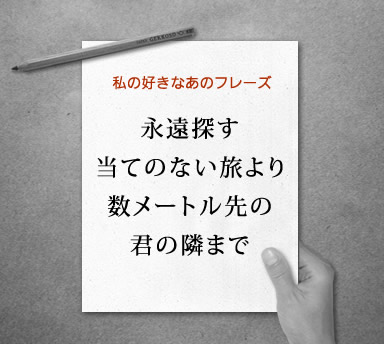 私の好きなあのフレーズ
永遠探す
当てのない旅より
数メートル先の
君の隣まで